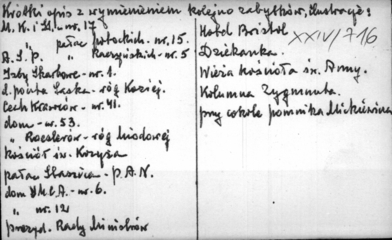 Krótki opis z wymienieniem kolejno zabytków, ilustracje:
M. K. i Sz. nr. 17
" pałac Potockich - nr. 15.
A. S. P. " Raczyńskich - nr. 5
Izby Skarbowe - nr. 1.
d. poczta Saska - róg Koziej.
Cech Krawców - nr. 41.
dom - nr. 53.
" Roeslerów - róg Miodowej
kościół św. Krzyża
pałac Staszica - P.A.N.
dom YMCA - nr. 6.
" nr. 12
prezyd. Rady Ministrów
Hotel Bristol
XXIV/716
Dziekanka.
Wieża kościoła św. Anny.
Kolumna Zygmunta.
przy cokole pomnika Mickiewicza